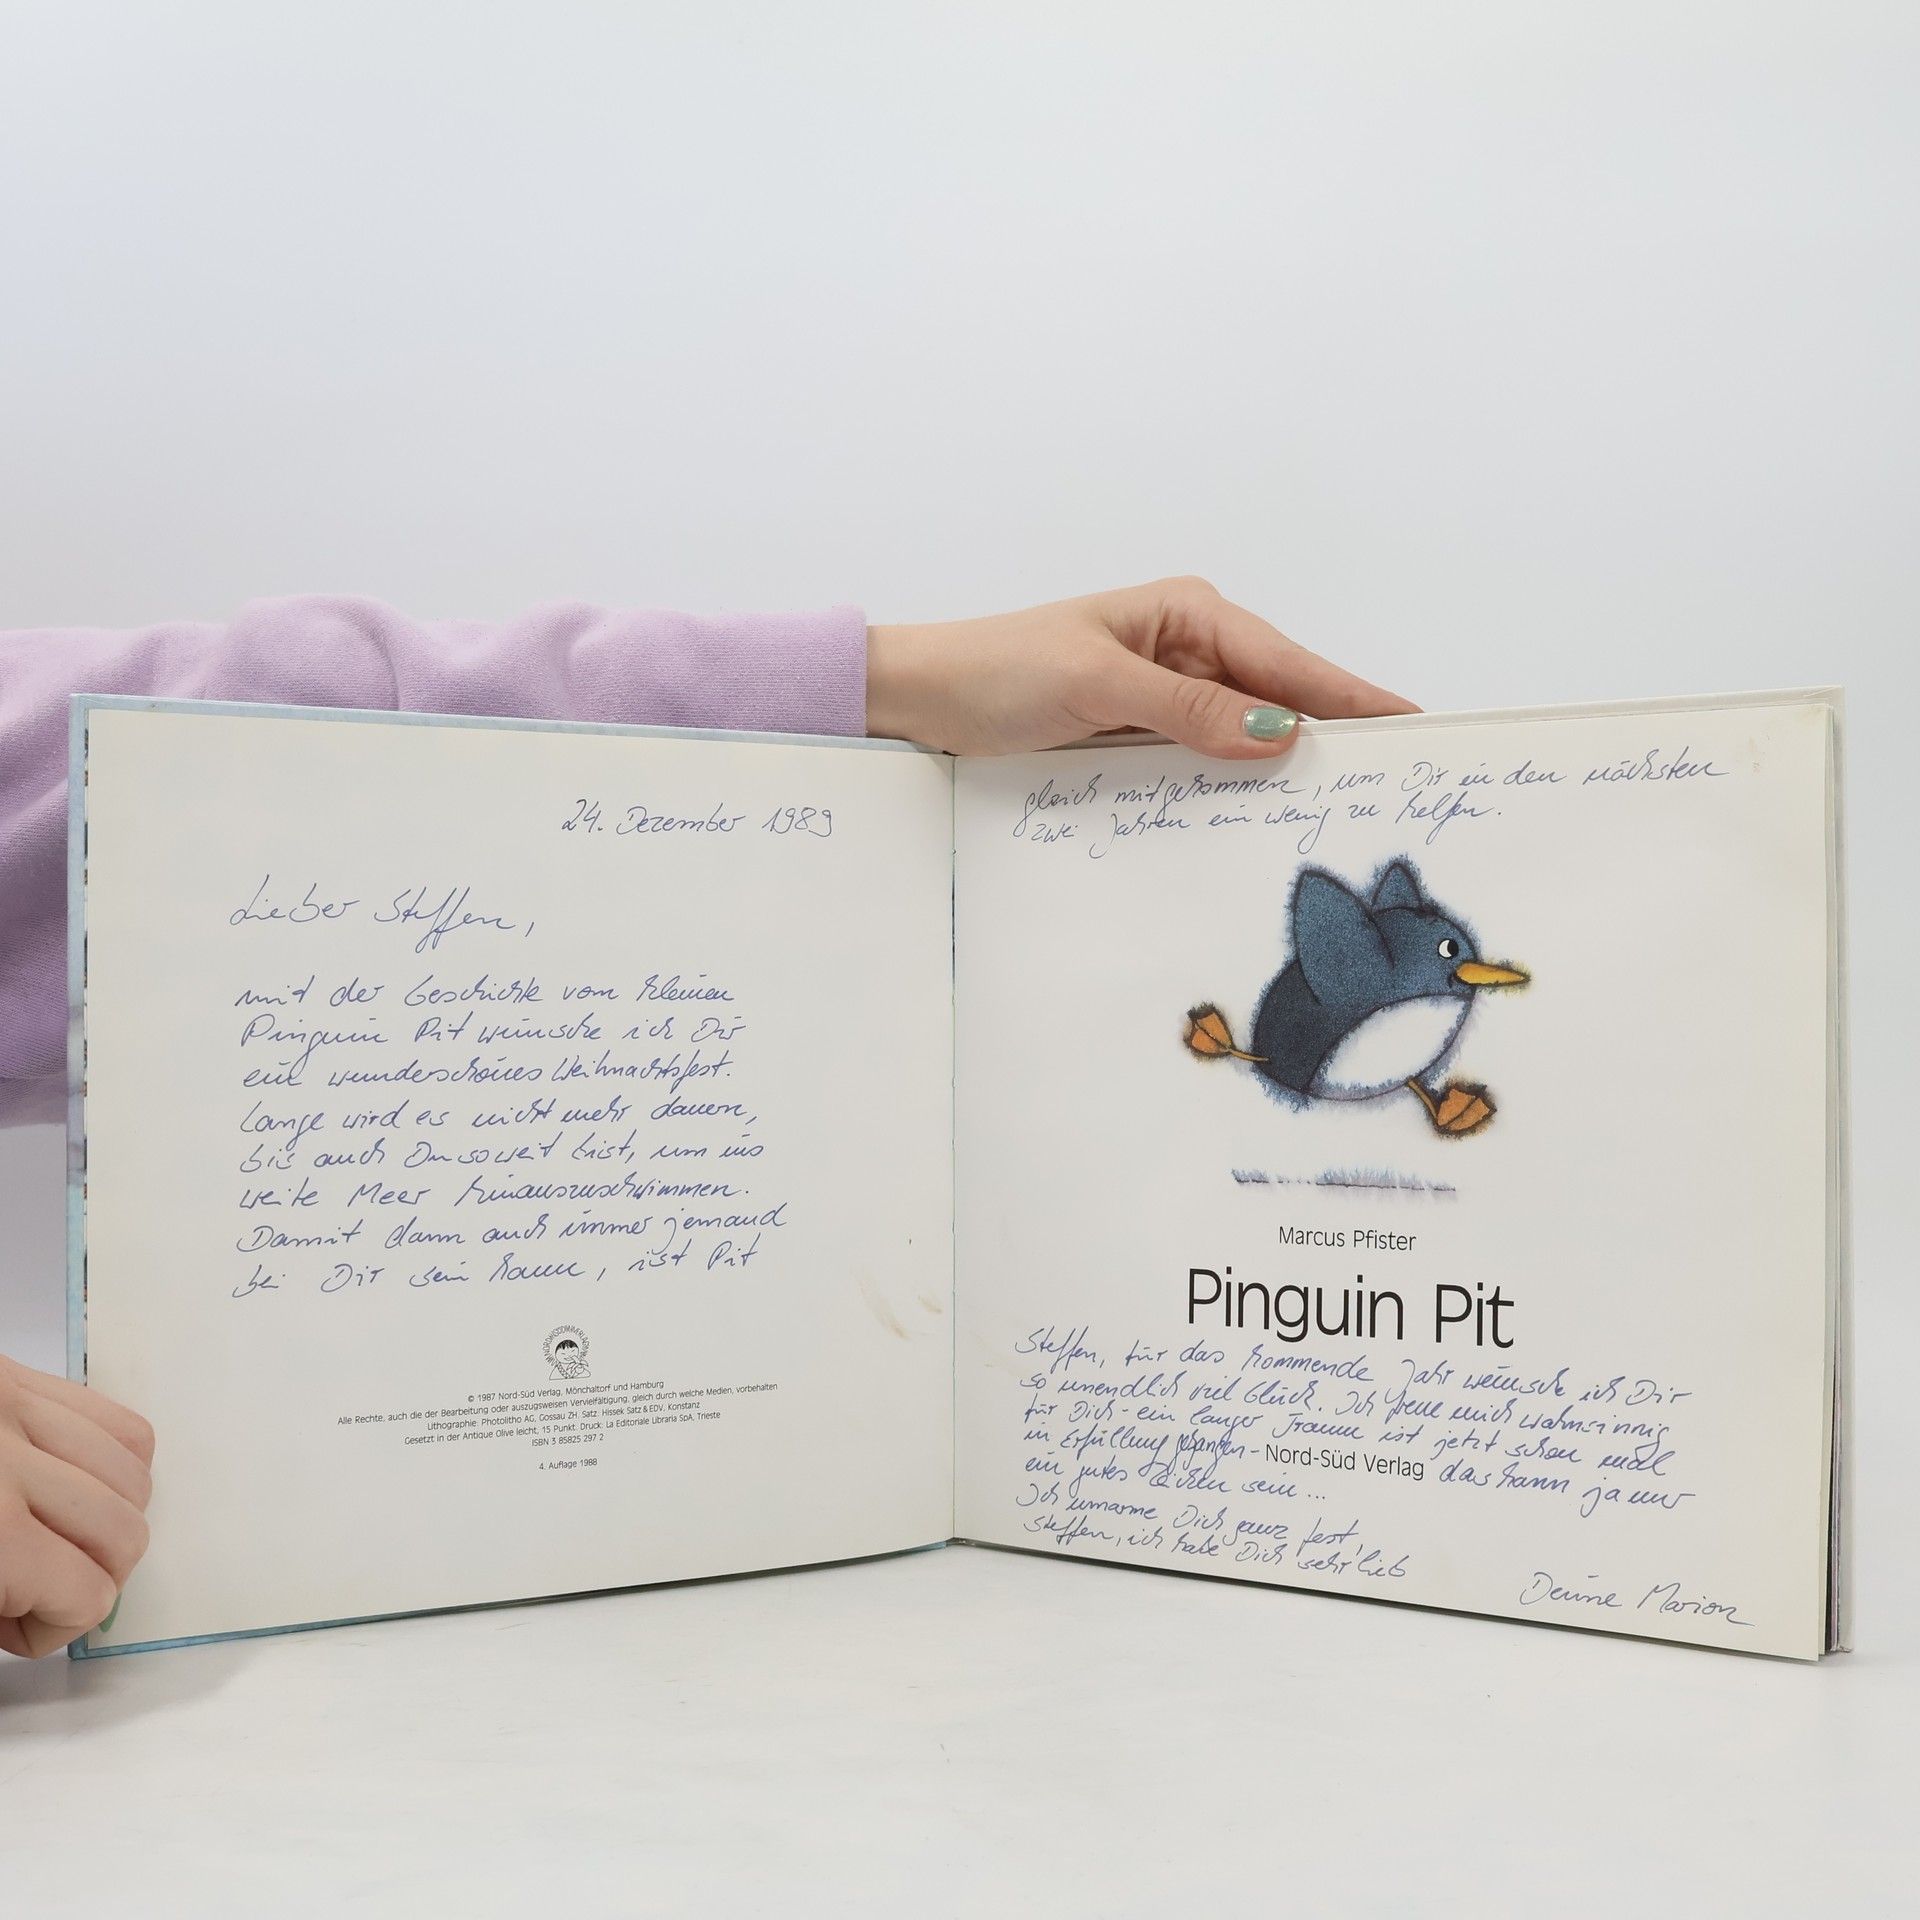 24. Dezember 1989
Lieber Steffen,
mit der Geschichte vom kleinen
Pinguin Pit wünsche ich Dir
ein wunderschönes Weihnachtsfest.
Lange wird es nicht mehr dauern,
bis auch Du soweit bist, um ins
weite Meer hinauszuschwimmen.
Damit dann auch immer jemand
bei Dir sein kann, ist Pit
© 1987 Nord-Süd Verlag, Mönchaltorf und Hamburg
Alle Rechte, auch die der Bearbeitung oder auszugsweisen Vervielfältigung, gleich durch welche Medien, vorbehalten
Lithographie: Photolitho AG, Gossau ZH. Satz: Hissek Satz & EDV, Konstanz
Gesetzt in der Antique Olive leicht, 15 Punkt. Druck: La Editoriale Libraria SpA, Trieste
ISBN 3 85825 297 2
4. Auflage 1988
gleich mitgekommen, um Dir in den nächsten
zwei Jahren ein wenig zu helfen.
Marcus Pfister
Pinguin Pit
Steffen, für das kommende Jahr wünsche ich Dir
so unendlich viel Glück. Ich freue mich wahnsinnig
für Dich - ein langer Traum ist jetzt schon mal
in Erfüllung gegangen - das kann ja nur
Nord-Süd Verlag
ein gutes Zeichen sein...
Ich umarme Dich ganz fest,
Steffen, ich habe Dich sehr lieb
Deine Marion